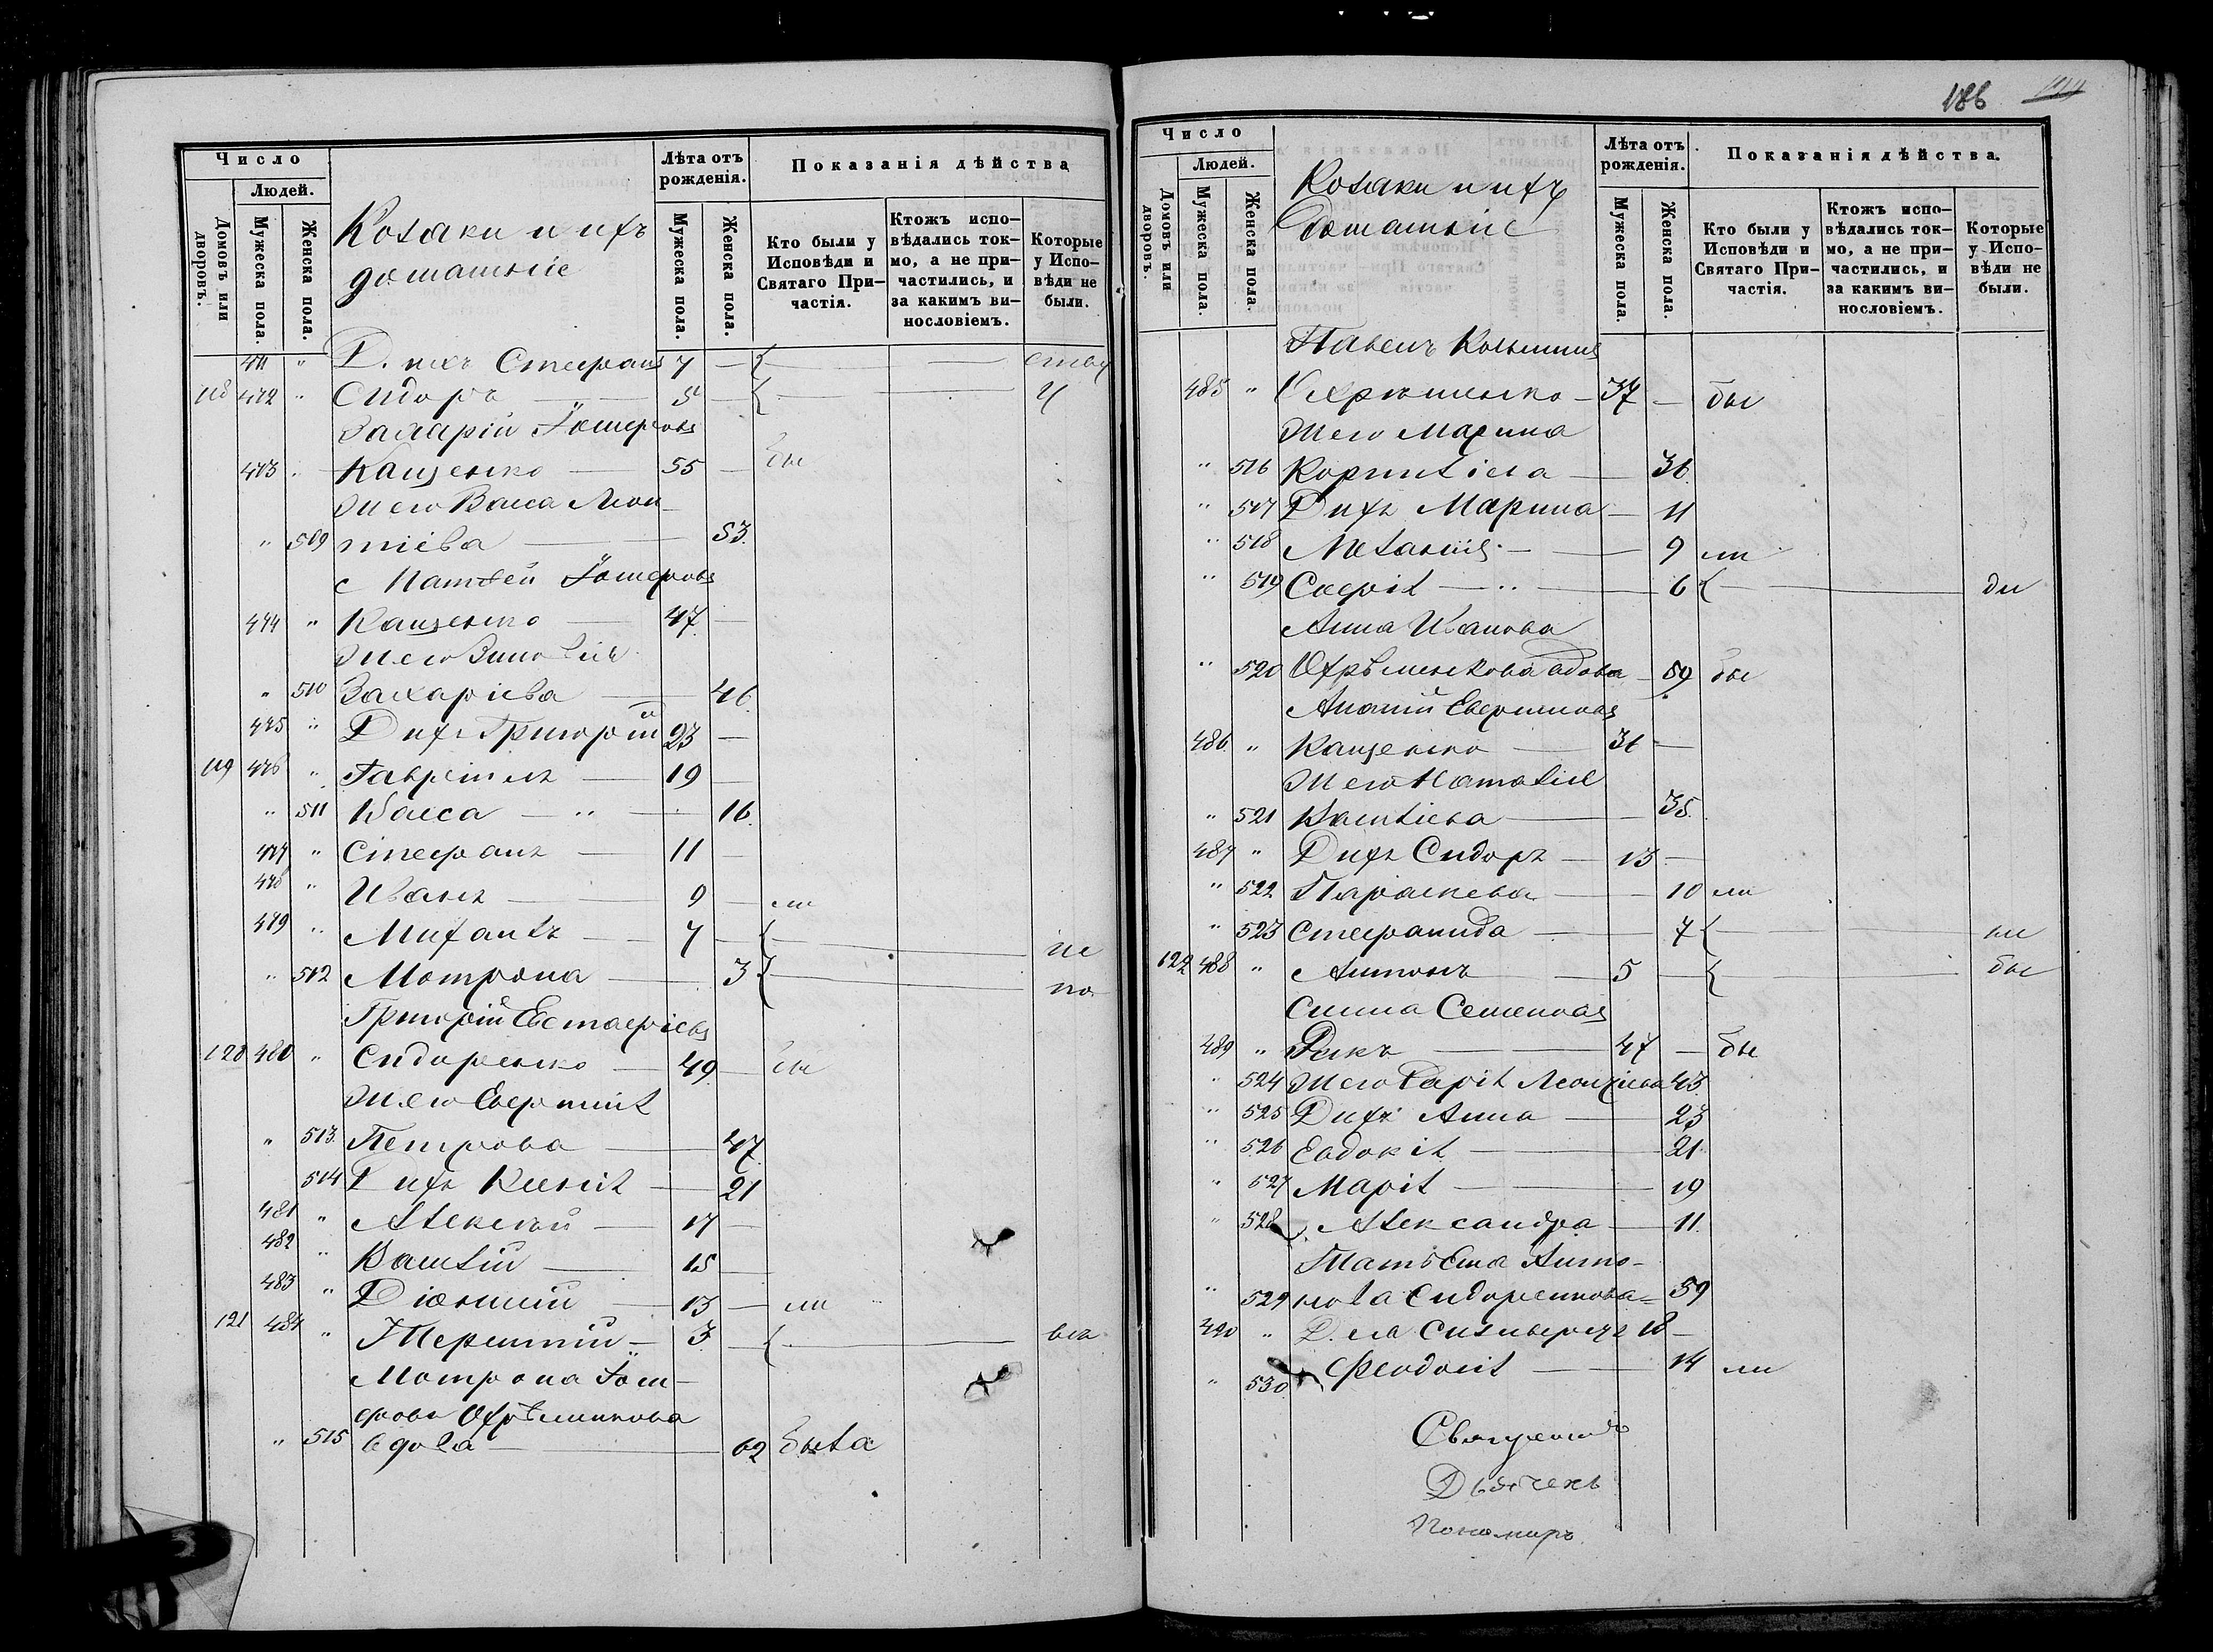 186
Число
Людей.
Домовъ или дворовъ.
Мужеска пола.
Женска пола.
Козаки и ихъ
домашніе
Лѣта отъ рожденія.
Мужеска пола.
Женска пола.
Показанія дѣйства
Кто были у Исповѣди и Святаго При-частія.
Ктожъ испо-вѣдались ток-мо, а не при-частились, и за какимъ ви-нословіемъ.
Которые у Испо-вѣди не были.
471 " Д. ихъ Стефанъ 7 —
118 472 " Сидоръ — 5 —
Захарій
473 " Кащенко — 55 — бы
Ж его Васса Леон-
" 509 тіева — 53.
474 " Кащенко — 47. —
Ж его Зиновія
" 510 Захаріева — 46.
475 " Д ихъ Григорій 23 —
119 476 " Гавріилъ — 19 —
" 511 Васса — " — 16.
477 " Стефанъ — 11 —
478 " Иванъ — 9 — ли
479 " Михаилъ — 7 — не
" 512 Мотрона — 3 по
Григорій Евстафіевъ
120 480 " Сидоренко — 49. — бы
Ж его Евфимія
" 513. Петрова — 47.
514 Д ихъ Ксенія — 21
481 " Алексѣй — 17 —
482 " Василій — 15 —
483 " Діонисій — 13 — ли
121 484 " Терентій — 3. —
Мотрона
Охрѣменкова
" 515 вдова — 62 была
Число
Людей.
Домовъ или дворовъ.
Мужеска пола.
Женска пола.
Козаки и ихъ
Домашніе
Лѣта отъ рожденія.
Мужеска пола.
Женска пола.
Показанія дѣйства.
Кто были у Исповѣди и Святаго При-частія.
Ктожъ испо-вѣдались ток-мо, а не при-частились, и за какимъ ви-нословіемъ.
Которые у Испо-вѣди не были.
Павелъ Козьминъ
485 " Охрѣменко — 37 — бы
Ж его Марина
" 516 Корниліева — 36.
" 517 Д ихъ Марина — 11
" 518 Меланія — 9 ли
" 519 Софія — " — 6
Анна Иванова
" 520 Охрѣменкова вдова — 59 бы
Ананій Евфимовъ
486 " Кащенко — 36 —
Ж его Наталія
" 521 Василіева — 35.
487 " Д ихъ Сидоръ — 13 —
" 522 Параскева — 10 ли
" 523 Стефанида — 7 не
122 488 " Антонъ — 5 — бы
Семеновъ
489 " — 47 — бы
" 524 Ж его Марія 43.
" 525 Д ихъ Анна — 23
" 526 Евдокія — 21.
" 527 Марія — 19
" 528 Александра — 11.
Татьяна Анто-
" 529 нова Сидоренкова — 59
490 " Д. ея Сильвестръ 18 —
" 530. Феодосія — 14 ли
Священникъ
Дьячекъ
Пономарь